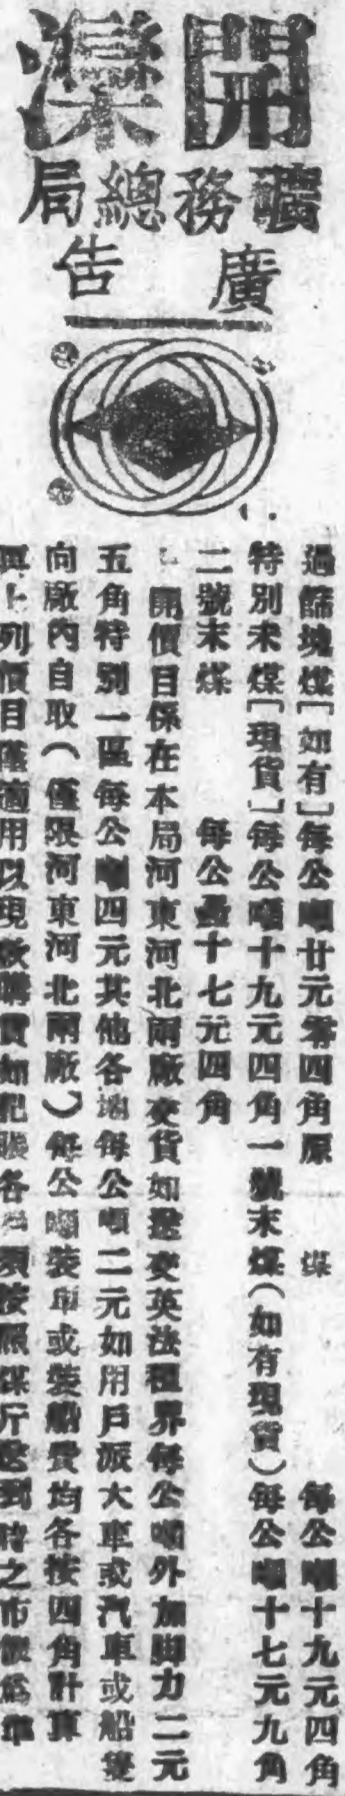 開灤
礦務總局
廣告
過篩塊煤[如有]每公噸廿元零四角原　煤　每公噸十九元四角
特別末煤[現貨]每公噸十九元四角一號末煤(如有現貨)每公噸十七元九角
二號末煤　每公噸十七元四角
開價目係在本局河東河北兩廠交貨如送交英法租界每公噸外加脚力二元
五角特別一區每公噸四元其他各地每公噸二元如用戶派大車或汽車或船隻
向廠內自取(僅限河東河北兩廠)每公噸裝車或裝船費均各按四角計算
再上列價目僅適用以現款購貨如記賬各戶須按照煤斤送到時之市價為準